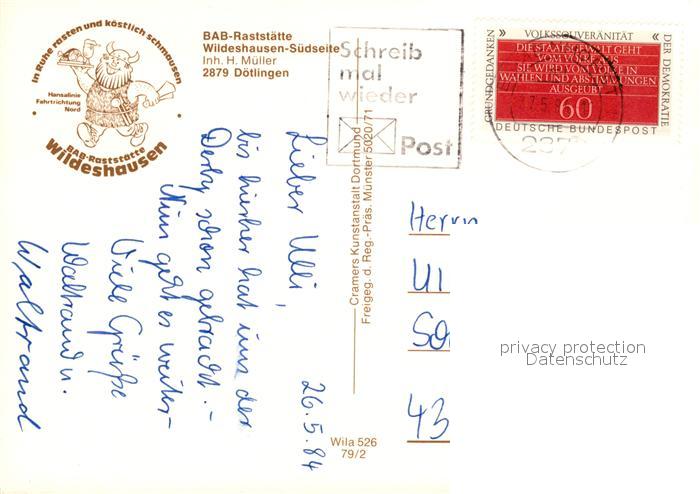 In Ruhe rasten und köstlich schmausen
Hansalinie
Fahrtrichtung
Nord
BAB-Raststätte
Wildeshausen
BAB-Raststätte
Wildeshausen-Südseite
Inh. H. Müller
2879 Dötlingen
Schreib
mal
wieder
Post
» VOLKSSOUVERÄNITÄT «
GRUNDGEDANKEN
DER DEMOKRATIE
DIE STAATSGEWALT GEHT
VOM VOLKE AUS
SIE WIRD VOM VOLKE IN
WAHLEN UND ABSTIMMUNGEN
AUSGEÜBT
60
DEUTSCHE BUNDESPOST
26.5.84
Lieber Ulli,
bis hierher hat uns der
Derby schon gebracht.-
Nun geht es weiter-
Viele Grüße
Waltraud u.
Waltraud
Cramers Kunstanstalt Dortmund
Freigeg. d. Reg.-Präs. Münster 5020/71
Wila 526
79/2
Herrn
Ul
43
privacy protection
Datenschutz